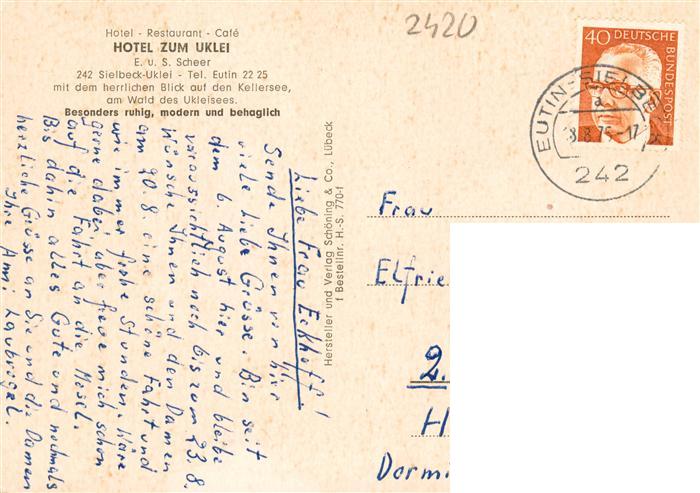 2420
Hotel - Restaurant - Café
HOTEL ZUM UKLEI
E. u. S. Scheer
242 Sielbeck-Uklei - Tel. Eutin 22 25
mit dem herrlichen Blick auf den Kellersee,
am Wald des Ukleisees.
Besonders ruhig, modern und behaglich
Liebe Frau Eckhoff!
Sende Ihnen von hier
viele liebe Grüsse. Bin seit
dem 6. August hier und bleibe
voraussichtlich noch bis zum 23. 8.
Wünsche Ihnen und den Damen
am 20. 8. eine schöne Fahrt und
wie immer frohe Stunden. Wäre
gerne dabei, aber freue mich schon
auf die Fahrt an die Mosel.
Bis dahin alles Gute und nochmals
herzliche Grüsse an Sie und die Damen
Ihre Anni Laubvogel.
Hersteller und Verlag Schöning & Co., Lübeck
Bestellnr. H.-S. 770-f
40 DEUTSCHE BUNDESPOST
EUTIN-SIELBE
a
8.8.75-17
242
Frau
Elfrie
2.
H
Dormi